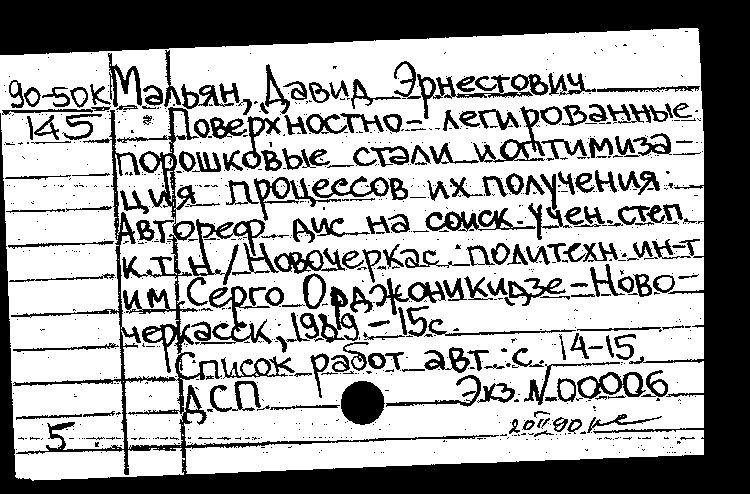 90-50К Мальян, Давид Эрнестович
145 Поверхностно-легированные
порошковые стали и оптимиза-
ция процессов их получения:
Автореф. дис на соиск. учен. степ
к.т.н./Новочеркас. политехн. ин-т
им. Серго Орджоникидзе-Ново-
черкасск, 1989.-15с.
Список работ авт.: с. 14-15.
ДСП Экз. №00006
5